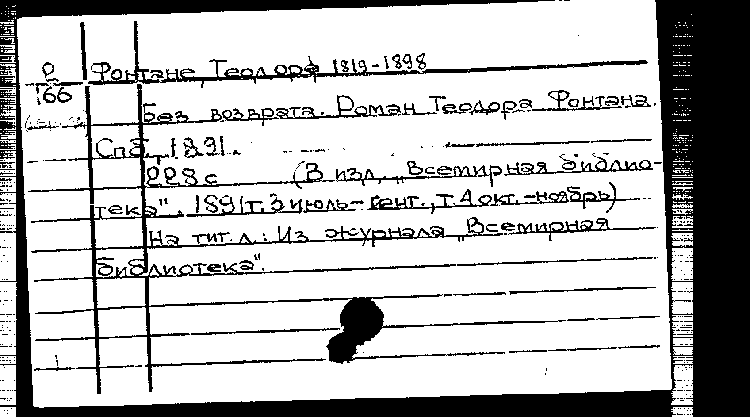 Р Фонтане, Теодорф 1819-1898
166
Без возврата. Роман Теодора Фонтана.
Спб, 1891.
228 с (В изд. „Всемирная библио-
тека". 1891 т. 3 июль-сент., т. 4 окт.-ноябрь)
На тит. л.: Из журнала „Всемирная
библиотека".